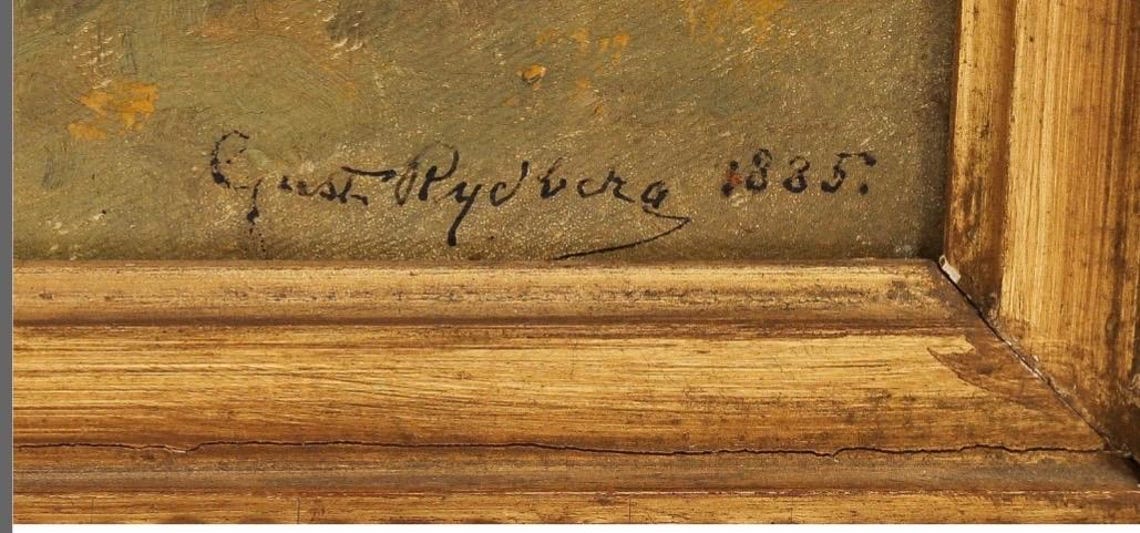 Gust. Rydberg 1885.